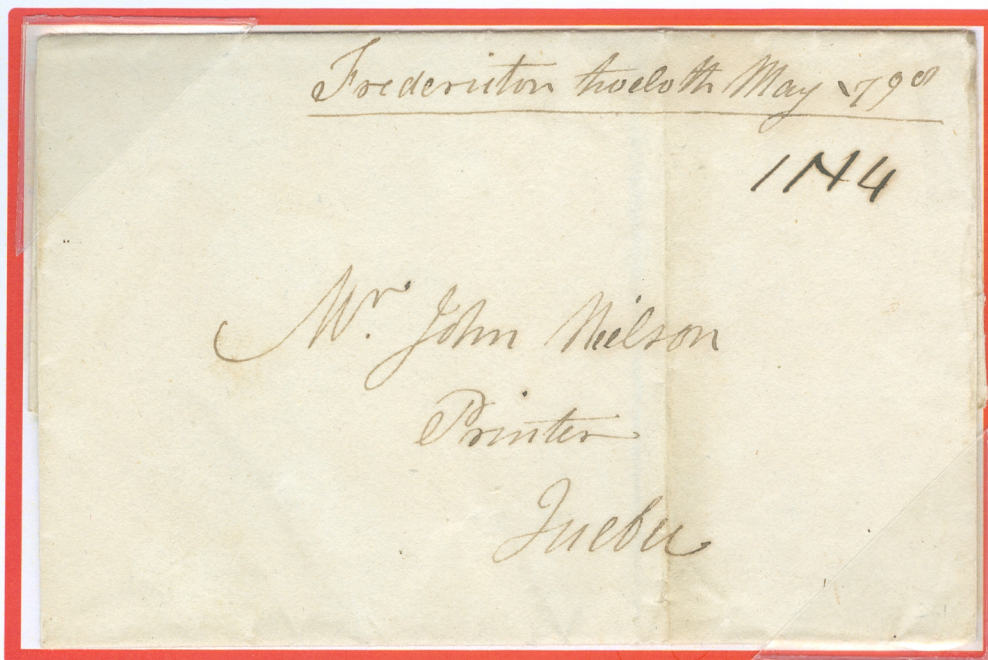 Fredericton twelvth May 1798
1N4
Mr. John Neilson
Printer
Quebec